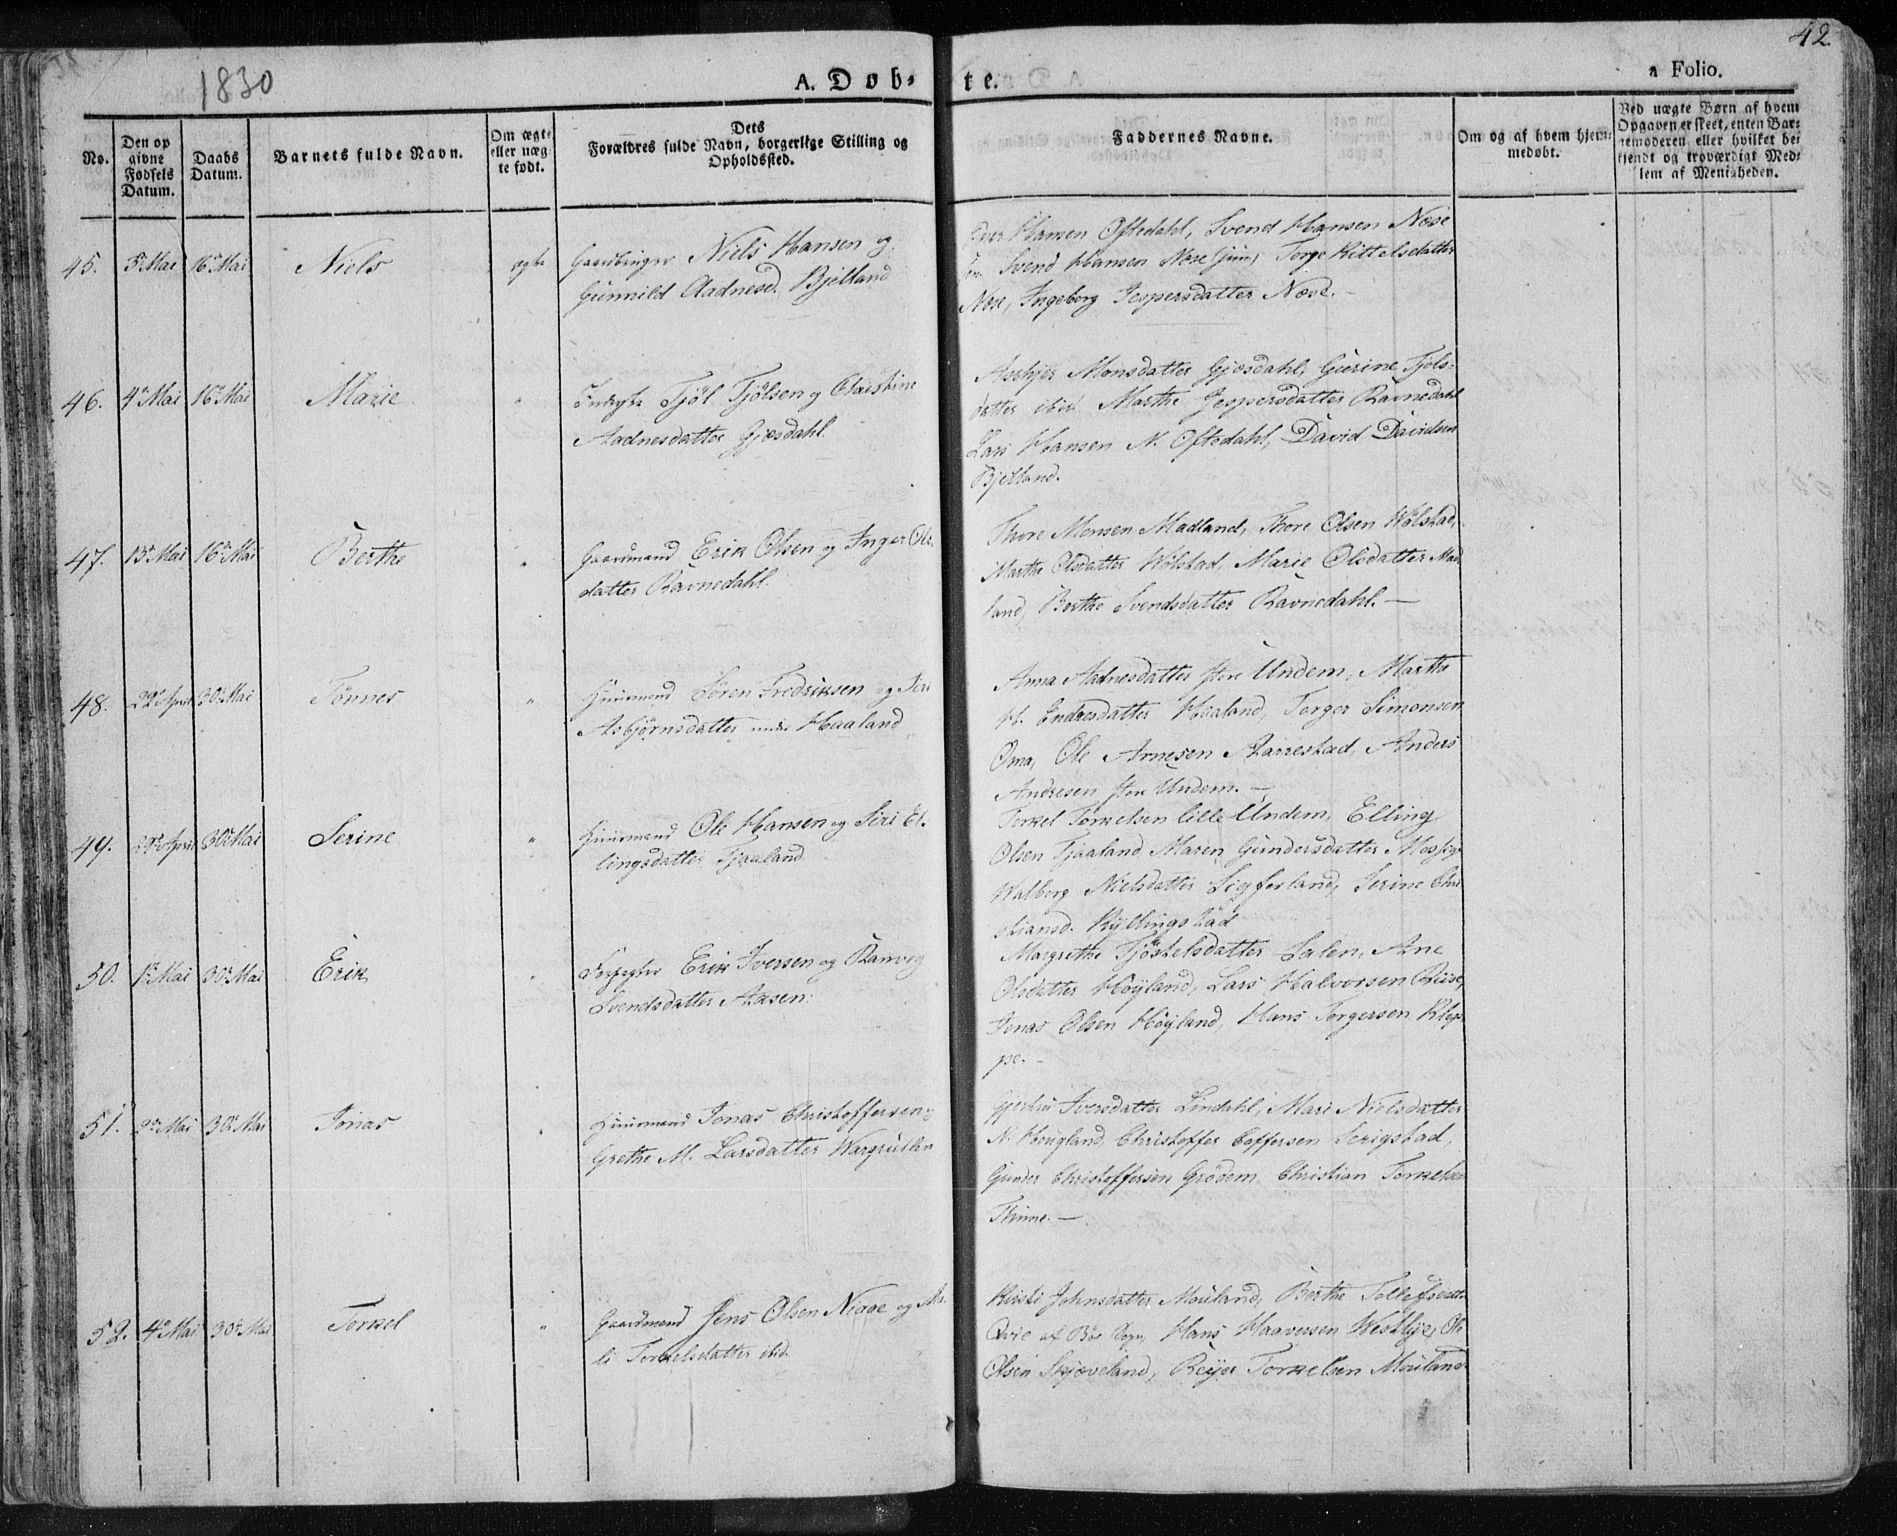 42
1830
A. Døb-
te.
a Folio.
No.
Den op
givne
Fødsels
Datum.
Daabs
Datum.
Barnets fulde Navn.
Om ægte
eller uæg
te født.
Dets
Forældres fulde Navn, borgerlige Stilling og
Opholdssted.
Faddernes Navne.
Om og af hvem hjem-
medøbt.
Ved uægte Børn af hvem
Opgaven er skeet, enten Bar-
nemoderen eller hvilket be-
kjendt og troværdigt Med-
lem af Menigheden.
45. 5te Mai 16de Mai Niels ægte Gaardbruger Niels Hansen og
Gunnild Aadnesd. Bjelland
Hansen Oftedahl, Svend Hansen Næse
Svend Hansen Næse jun, Torge Kittelsdatter
Næse, Ingeborg Jespersdatter Næse. -
46. 4de Mai 16de Mai Marie " Tjöl Tjölsen og Christine
Aadnesdatter Gjæsdahl.
Asebjer Monsdatter Gjæsdahl, Gurine Tjöls-
datter ibid Marthe Jespersdatter Ravnedahl
Lars Hansen N. Oftedahl, David Davidsen
Bjelland.
47. 13de Mai 16de Mai Berthe " Gaardmand Erik Olsen og Inger Ols-
datter Ravnedahl.
Thore Monsen Madland, Thore Olsen Wölstad,
Marthe Olsdatter Wölstad, Marie Olsdatter Mad
land, Berthe Svendsdatter Ravnedahl. -
48. 22de April 30te Mai Tönnes " Huusmand Sören Fredriksen og Siri
Asbjörnsdatter under Haaland
Anna Aadnesdatter store Undem, Marthe
H. Endresdatter Haaland, Torger Simonsen
Oma, Ole Arnesen Aarrestad, Anders
Andresen store Undem. -
49. 29de April 30te Mai Serine " Huusmand Ole Hansen og Siri El-
lingsdatter Tjaaland
Torkel Torkelsen lille Undem, Elling
Olsen Tjaaland Maren Gundersdatter
Walborg Nielsdatter Sigferland, Serine Chri
stiansd. Kyllingstad
50. 1te Mai 30te Mai Erik " Erik Iversen og Ranveg
Svendsdatter Aasen.
Margrethe Tjöstelsdatter Salen, Ane
Olsdatter Höyland, Lars Halvorsen Riise,
Jonas Olsen Höyland, Hans Torgersen Klep
pe. -
51. 2den Mai 30te Mai Jonas " Huusmand Jonas Christoffersen og
Grethe M. Larsdatter
Iversdatter Lindahl, Mari Nielsdatter
N. Hougland, Christoffer Coffersen Serigstad,
Gunder Christoffersen Grödem, Christian Torkelsen
Thime. -
52. 4de Mai 30te Mai Torkel " Gaardmand Jens Olsen Niaae og Ma-
li Torkelsdatter ibid.
Kirsti Johnsdatter Mouland, Berthe Tollefsdatter
Qvie af Böe Sogn, Hans Haaversen Westlye, Ole
Olsen Skjæveland, Reyer Torkelsen Mouland